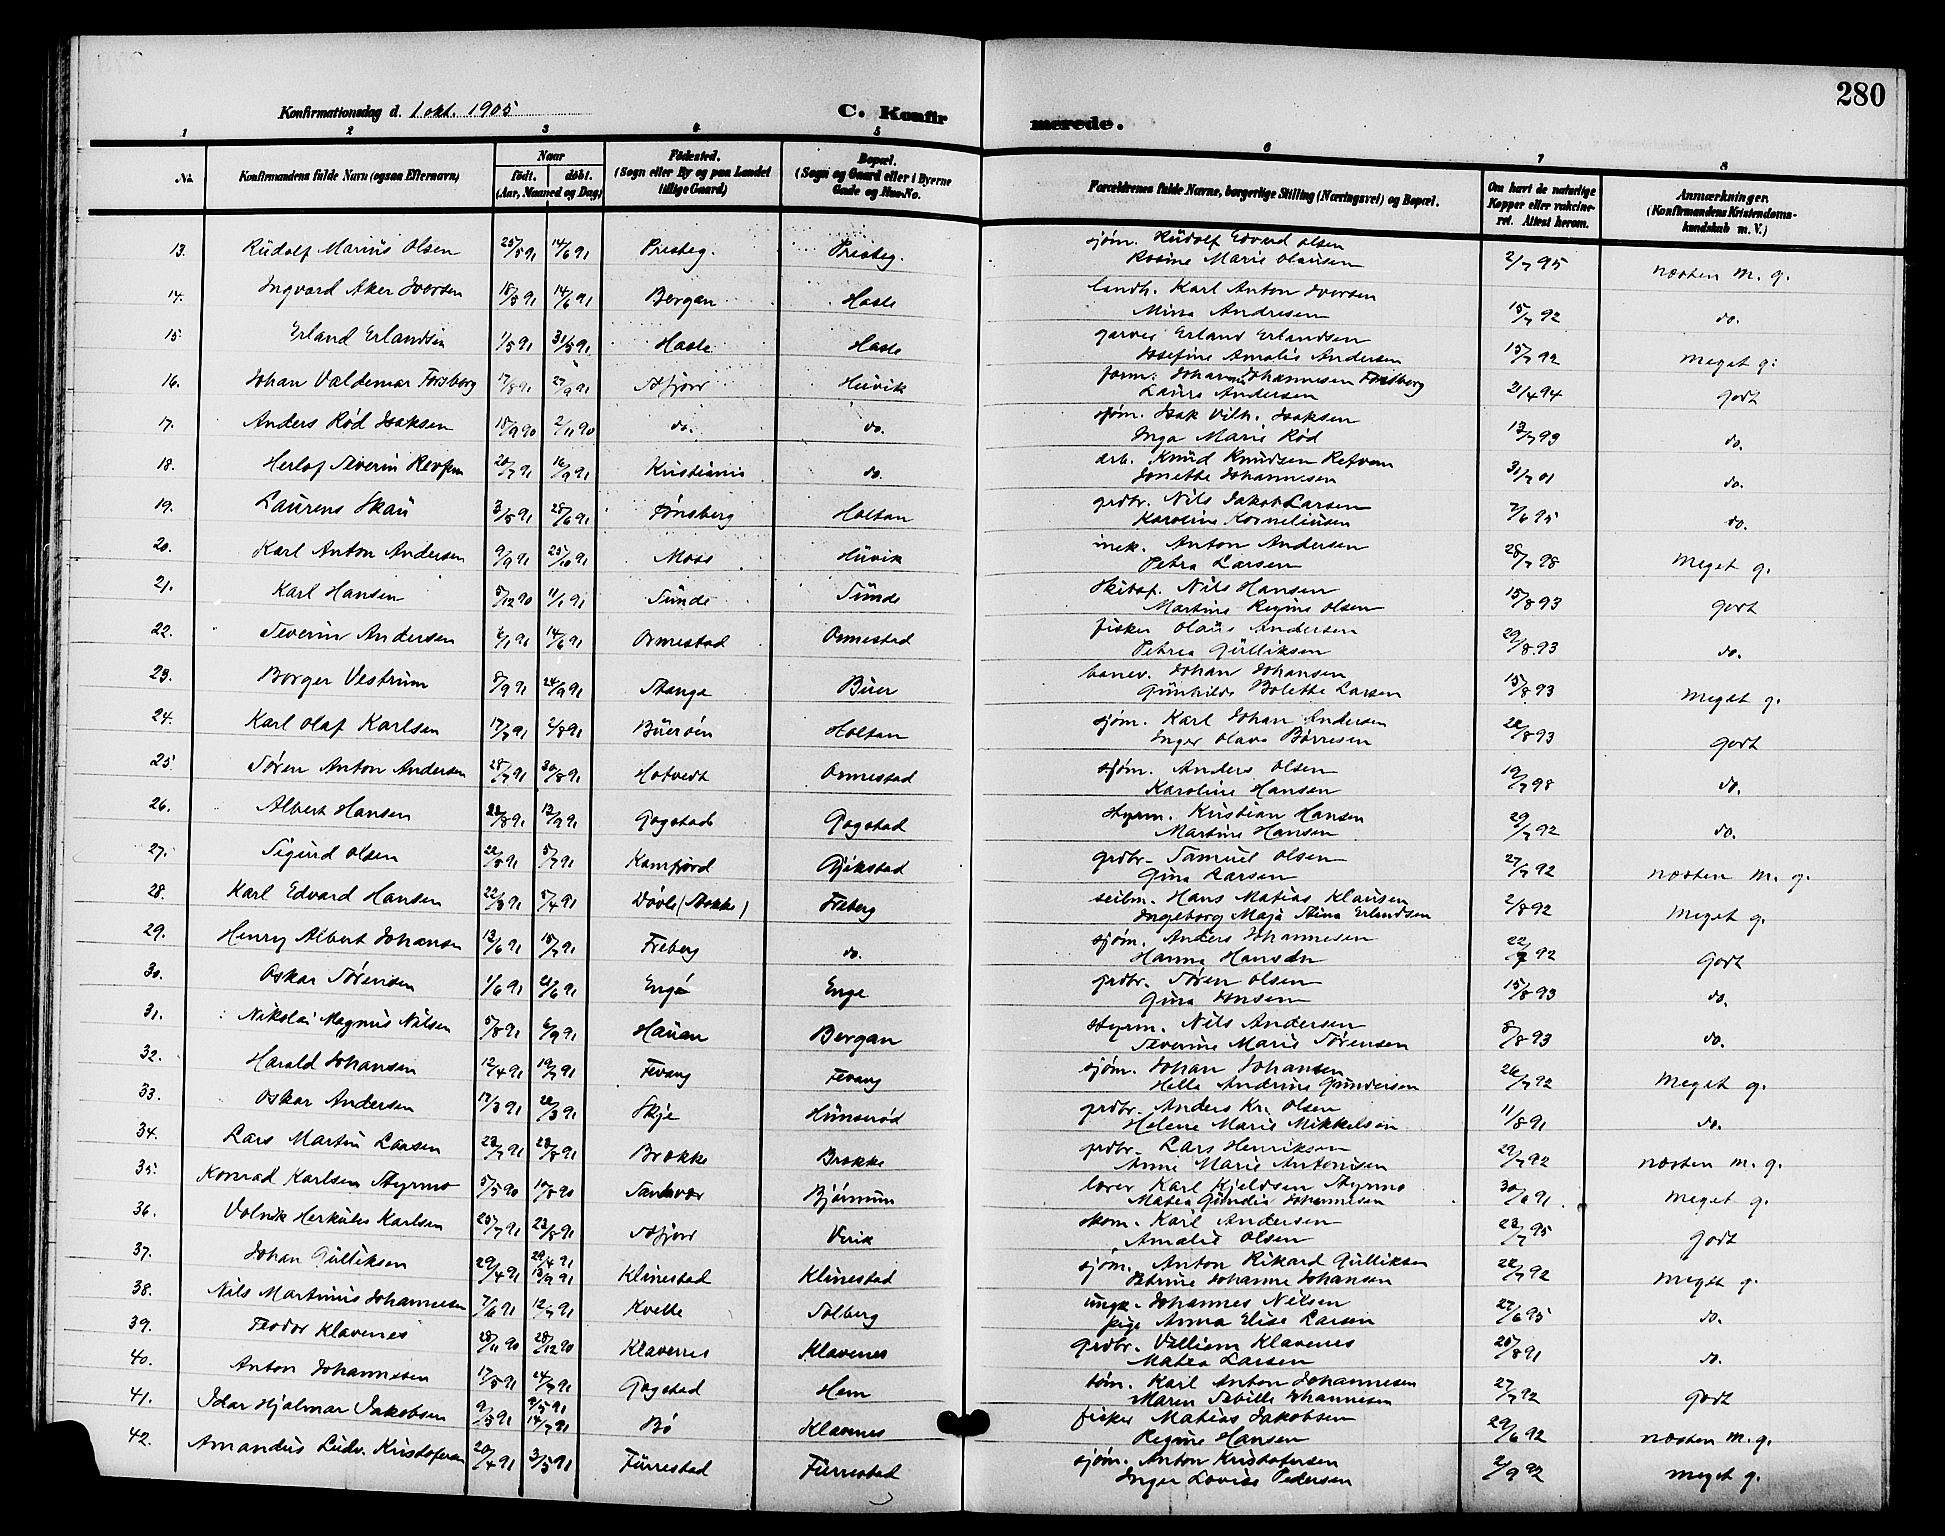 280
Konfirmationsdag d. 1 okt. 1905
C. Konfirmerede.
1 2 3 4 5 6 7 8
No. Konfirmandens fulde Navn (ogsaa Efternavn) Naar født. døbt. (Aar, Maaned og Dag) Fødested. (Sogn eller By og paa Landet tillige Gaard) Bopæl. (Sogn og Gaard eller i Byerne Gade og Hus-No. Forældrenes fulde Navne, borgerlige Stilling (Næringsvei) og Bopæl. Om havt de naturlige Kopper eller vakcineret. Attest herom. Anmærkninger. (Konfirmandens Kristendomskundskab m. V.)
13. Rudolf Marius Olsen 25/5 91 14/6 91 Presteg. Presteg. sjøm. Rudolf Edvard Olsen 2/7 95 næsten m. g.
Rosine Marie Olausen
14. Ingvard Aker Iversen 18/5 91 14/6 91 Bergan Hasle landh. Karl Anton Iversen 15/7 92 do.
Mina Andresen
15. Erland Erlandsen 1/5 91 31/5 91 Hasle Hasle garver Erland Erlandsen 15/7 92 meget g.
Josefine Amalie Andersen
16. Johan Valdemar Forsberg 17/8 91 27/9 91 Afjorr Huvik form. Johan Johannesen Forsberg 21/4 94 godt
Laura Andersen
17. Anders Rød Isaksen 15/9 90 2/11 90 do. do. sjøm. Isak Vilh. Isaksen 13/7 93 do.
Inga Marie Rød
18. Herlof Severin 20/7 91 16/9 91 Kristiania do. arb. Knud Knudsen Refvem 31/7 01 do.
Jonette Johannesen
19. Laurens Skau 3/5 91 28/6 91 Tønsberg Holtan grdbr. Nils Jakob Larsen 7/6 95 do.
Karoline Korneliusen
20. Karl Anton Andersen 9/9 91 25/10 91 Moss Huvik Anton Andersen 28/7 98 meget g.
Petra Larsen
21. Karl Hansen 5/12 90 11/1 91 Sunde Sunde Nils Hansen 15/8 93 godt
Martine Regine Olsen
22. Severin Andersen 14/6 91 Ormestad Ormestad fisker Olaus Andersen 29/8 93 do.
Petrea Gulliksen
23. Borger Vestrum 8/9 91 24/9 91 Stange Buer banev. Johan Johansen 15/8 93 meget g.
Gunhilde Bolette Larsen
24. Karl Olaf Karlsen 17/7 91 2/8 91 Buerøen Holtan sjøm. Karl Johan Andersen 22/8 93 godt
Inger Olava Børresen
25. Søren Anton Andersen 28/7 91 30/8 91 Hotvedt Ormestad sjøm. Anders Olsen 19/7 98 do.
Karoline Hansen
26. Albert Hansen 22/8 91 13/9 91 Gogstad Gogstad styrm. Kristian Hansen 29/7 92 do.
Martine Hansen
27. Sigurd Olsen 22/5 91 5/7 91 Kamfjord Gjekstad grdbr. Samuel Olsen 27/7 92 næsten m. g.
Gina Larsen
28. Karl Edvard Hansen 22/3 91 5/4 91 Døvle (Stokke) Freberg seilm. Hans Matias Klausen 2/8 92 meget g.
Ingeborg Maja Stina Erlandsen
29. Henry Albert Johansen 13/6 91 15/7 91 Freberg do. sjøm. Anders Johannesen 22/7 92 godt
Hanna Hansdn
30. Oskar Sørensen 1/6 91 28/6 91 Engø Enge grdbr. Søren Olsen 15/8 93 do.
Gina Jonsen
31. Nikolai Magnus Nilsen 5/8 91 6/9 91 Hauan Bergan styrm. Nils Andersen 8/8 93 do.
Severine Marie Sørensen
32. Harald Johansen 12/4 91 19/7 91 Fevang Fevang sjøm. Johan Johansen 26/7 92 meget g.
Helle Andrine Gundersen
33. Oskar Andersen 12/3 91 22/3 91 Skje Hunserød grdbr. Anders Kr. Olsen 11/8 91 do.
Helene Marie Mikkelsen
34. Lars Martin Larsen 23/7 91 23/8 91 Brokke Brokke grdbr. Lars Henriksen 29/7 92 næsten m. g.
Anne Marie Antonisen
35. Konrad Karlsen Styrmo 5/5 90 10/8 90 Sandvær Bjørnum lærer Karl Kjeldsen Styrmo 30/6 91 meget g.
Matea Johannesen
36. Volrik Herkules Karlsen 25/7 91 23/8 91 Afjorr Virik skom. Karl Andersen 23/7 95 godt
Amalie Olsen
37. Johan Gulliksen 29/4 91 29/4 91 13/9 91 Klinestad Klinestad sjøm. Anton Rikard Gulliksen 22/7 92 meget g.
Petrine Johanne Johansen
38. Nils Martinius Johannesen 7/6 91 12/7 91 Kvelle Solberg ungk. Johannes Nilsen 27/6 95 do.
pige Anna Elise Larsen
39. Teodor Klavenes 28/11 90 28/12 90 Klavenes Klavenes grdbr. Villiam Klavenes 25/8 91 do.
Matea Larsen
40. Anton Johannesen 17/5 91 24/7 91 Gogstad Hem tøm. Karl Anton Johannesen 27/7 92 godt
Maren Sebille Johannesen
41. Idar Hjalmar Jakobsen 9/5 91 9/5 91 14/7 91 Bø Klavenes fisker Matias Jakobsen 29/6 92 næsten m. g.
Regine Hansen
42. Amandus Ludv. Kristofersen 20/4 91 3/5 91 Furrestad Furrestad sjøm. Anton Kristofersen 2/9 92 meget g.
Inger Lovise Pedersen